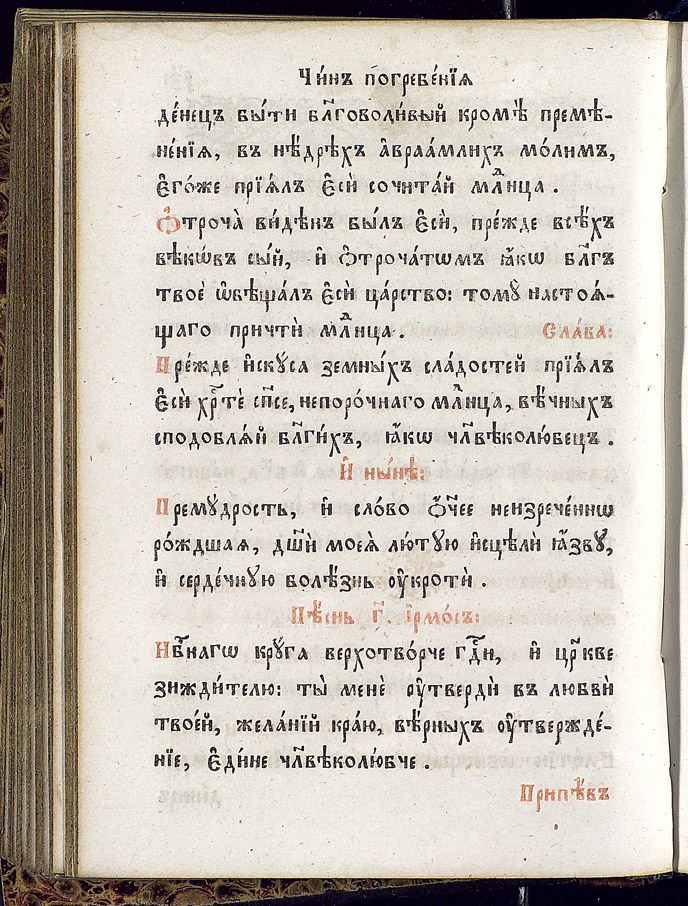 Чи́нъ погребе́нїѧ
де́нецъ бы́ти бл҃говоли́вый кромѣ̀ премѣ-
не́нїѧ, въ нѣ́дрѣхъ а҆враа́млихъ мо́лимъ,
є҆го́же прїѧ́лъ є҆сѝ сочита́й млⷣнца .
Ѻ҆троча̀ ви́дѣнъ бы́лъ є҆сѝ, пре́жде всѣ́хъ
вѣкѡ́въ сы́й, и҆ ѻ҆троча́тѡмъ ꙗ҆́кѡ бл҃гъ
твоѐ ѡ҆бѣща́лъ є҆сѝ ца́рство: томꙋ̀ настоѧ́-
щаго причтѝ млⷣнца . Сла́ва:
Пре́жде и҆скꙋ́са земны́хъ сла́достей прїѧ́лъ
є҆сѝ хрⷭ҇тѐ сп҃се, непоро́чнаго млⷣнца, вѣ́чныхъ
сподоблѧ́ѧй бл҃ги́хъ, ꙗ҆́кѡ чл҃вѣколю́бецъ .
И҆ ны́нѣ:
Премꙋ́дрость, и҆ сло́во ѻ҆́ч҃ее неизрече́ннѡ
ро́ждшаѧ, дш҃ѝ моеѧ̀ лю́тꙋю и҆сцѣлѝ ꙗ҆́звꙋ,
и҆ серде́чнꙋю болѣ́знь ᲂу҆кротѝ .
Пѣ́снь г҃. І҆рмо́съ:
Нб҇⁠наго крꙋ́га верхотво́рче гдⷭ҇и, и҆ цр҃кве
зижди́телю: ты̀ менѐ ᲂу҆твердѝ въ любвѝ
твое́й, жела́нїй кра́ю, вѣ́рныхъ ᲂу҆твержде́-
нїе, є҆ди́не чл҃вѣколю́бче .
Припѣ́въ